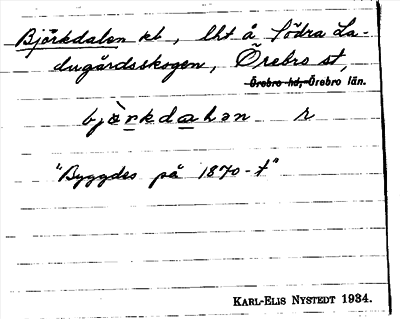 Björkdalen kb, lht å Södra La-
dugårdsskogen, Örebro st,
Örebro hd, Örebro län.
bjö̀rkdalən r
"Byggdes på 1870-t"
KARL-ELIS NYSTEDT 1934.